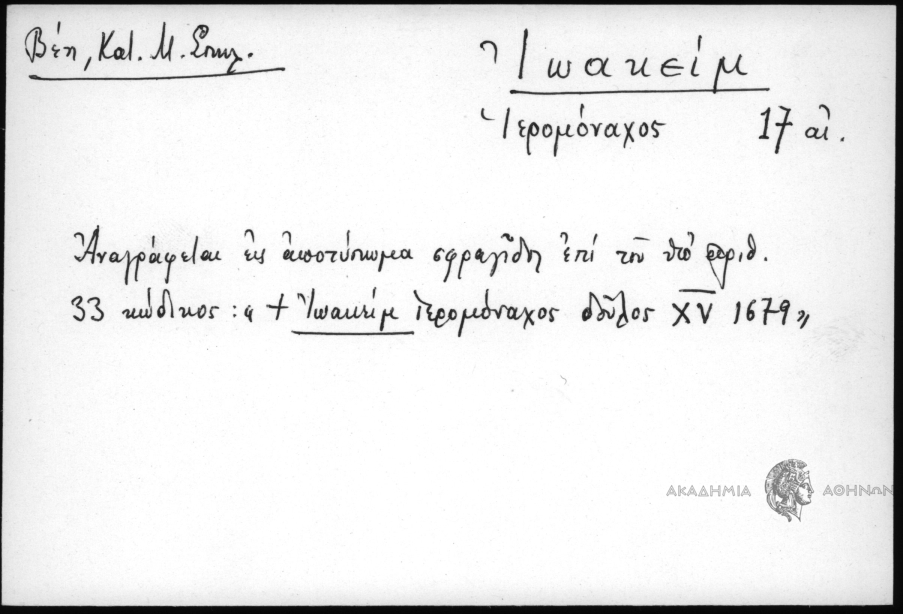 Βέη, Κατ. Μ. Σπηλ.
Ἰωακείμ
Ἱερομόναχος 17 αἰ.
Ἀναγράφεται εἰς ἀποτύπωμα σφραγῖδος ἐπί τοῦ ὑπ' ἀριθ.
33 κώδικος : « + Ἰωακείμ Ἱερομόναχος δοῦλος XV 1679 »
ΑΚΑΔΗΜΙΑ ΑΘΗΝΩΝ